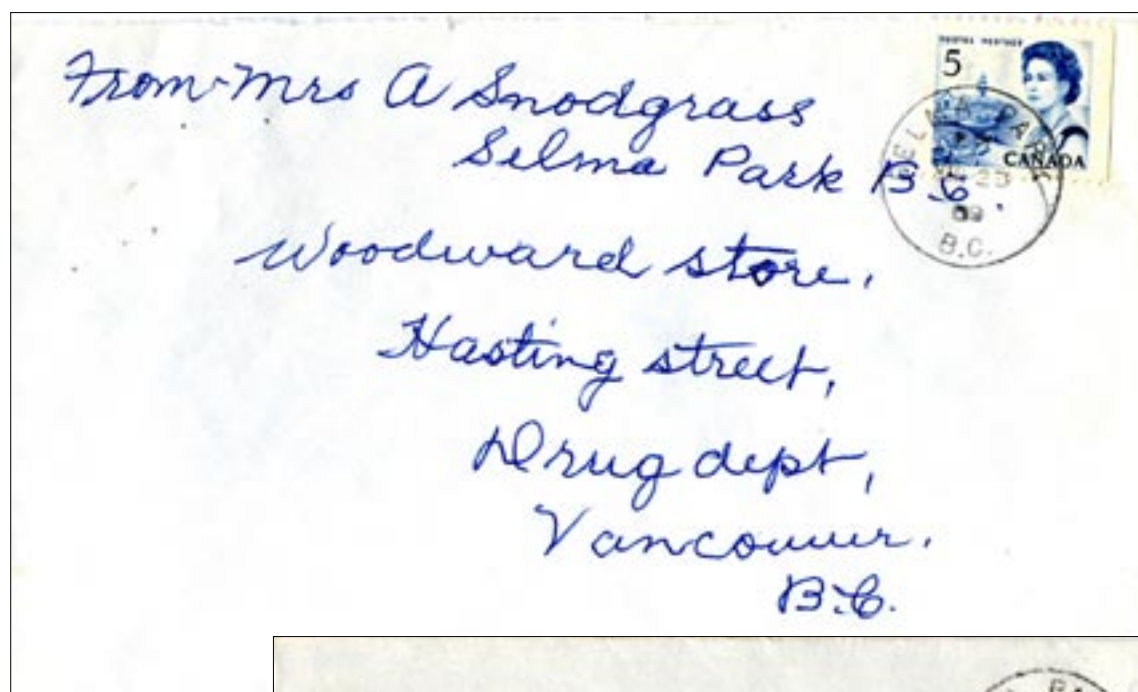 From - Mrs A Snodgrass
Selma Park B.C.
Woodward store,
Hasting street,
Drug dept,
Vancouver.
B.C.
POSTES POSTAGE
5
CANADA
SELMA PARK
23
69
B.C.